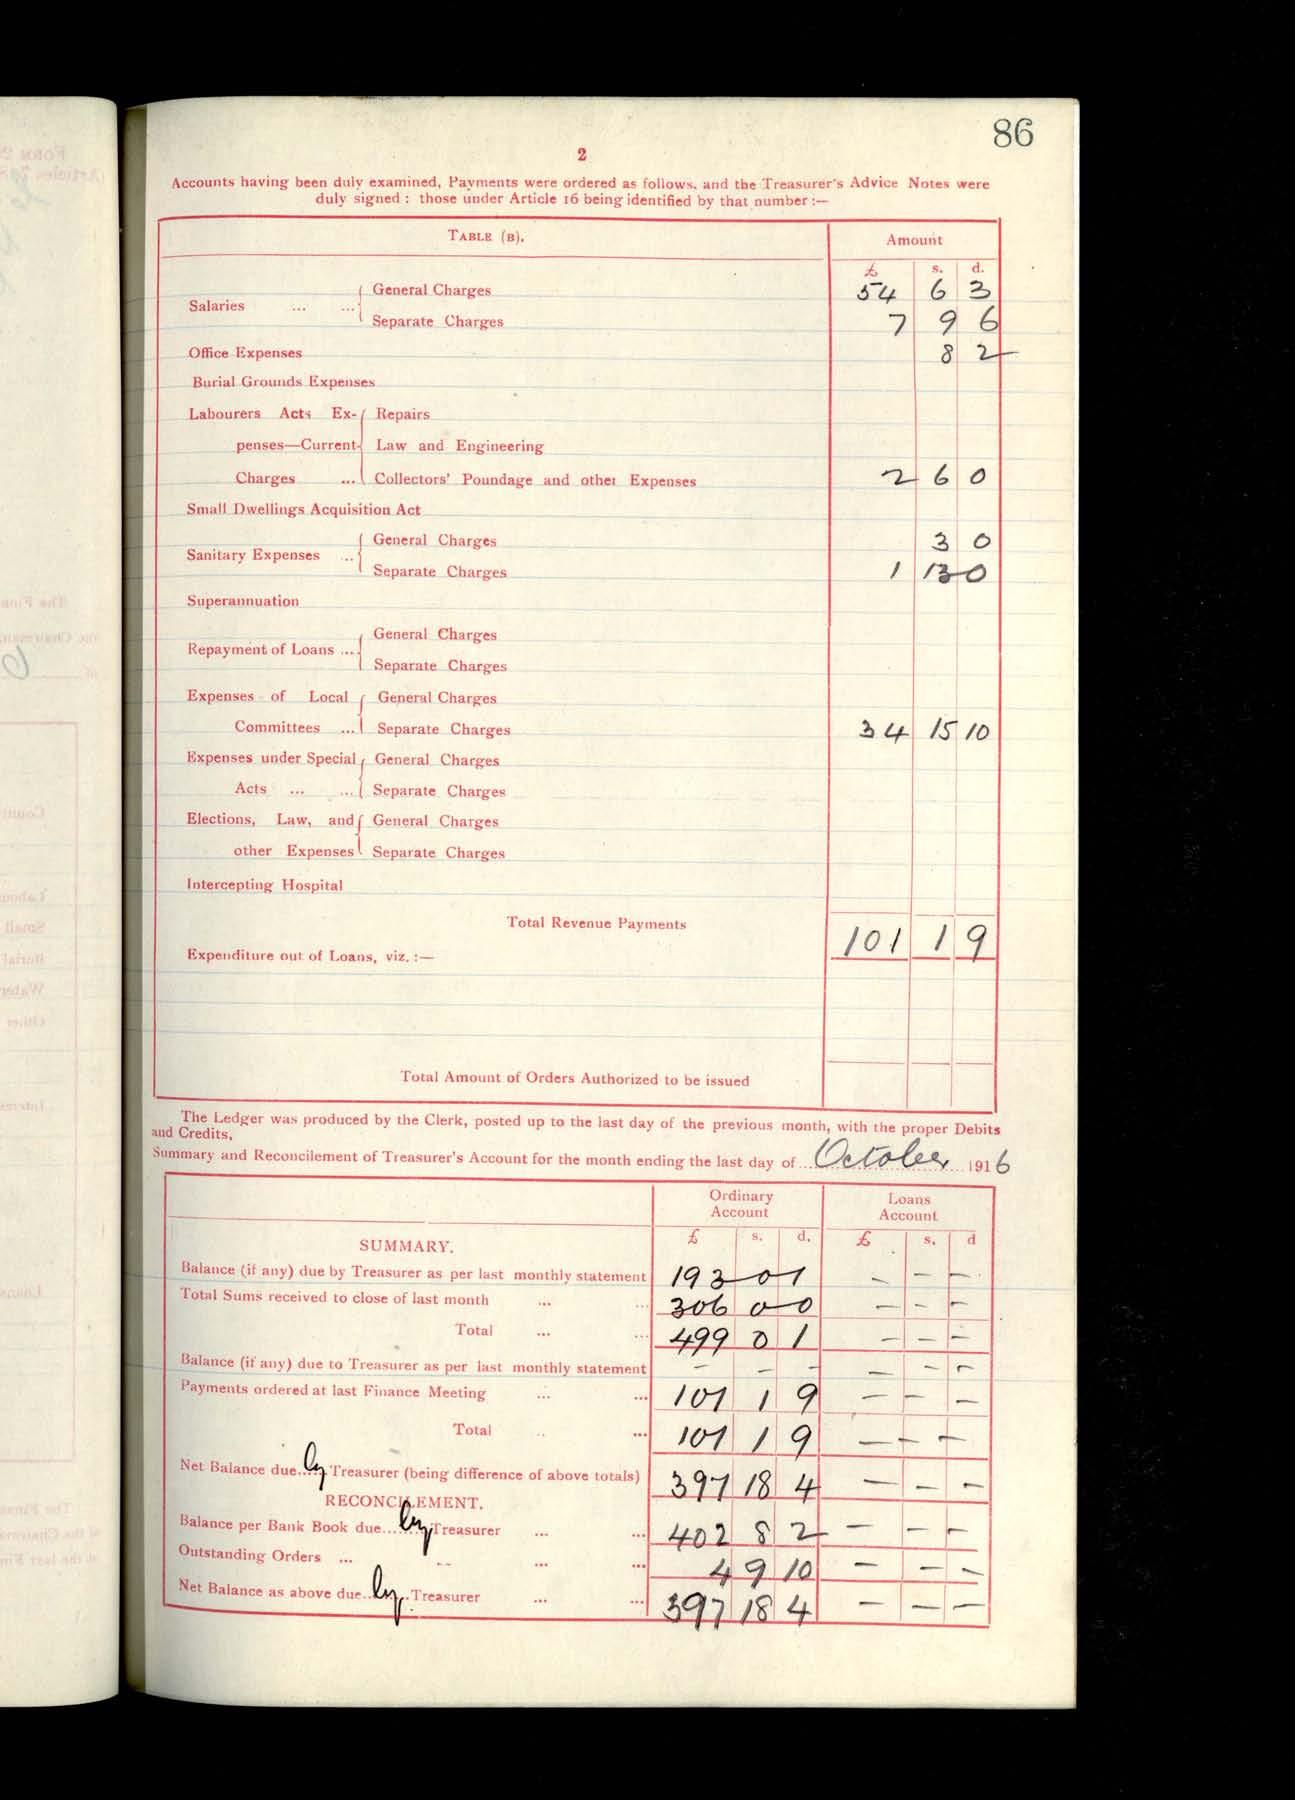 86
2
Accounts having been duly examined, Payments were ordered as follows, and the Treasurer's Advice Notes were
duly signed : those under Article 16 being identified by that number :—
TABLE (B). Amount
£ s. d.
General Charges 54 6 3
Salaries ... ...
Separate Charges 7 9 6
Office Expenses 8 2
Burial Grounds Expenses
Labourers Acts Ex- Repairs
penses—Current Law and Engineering
Charges ... Collectors' Poundage and other Expenses 2 6 0
Small Dwellings Acquisition Act
General Charges 3 0
Sanitary Expenses ...
Separate Charges 1 13 0
Superannuation
General Charges
Repayment of Loans ...
Separate Charges
Expenses of Local General Charges
Committees ... Separate Charges 34 15 10
Expenses under Special General Charges
Acts ... ... Separate Charges
Elections, Law, and General Charges
other Expenses Separate Charges
Intercepting Hospital
Total Revenue Payments 101 1 9
Expenditure out of Loans, viz. :—
Total Amount of Orders Authorized to be issued
The Ledger was produced by the Clerk, posted up to the last day of the previous month, with the proper Debits
and Credits,
Summary and Reconcilement of Treasurer's Account for the month ending the last day of October 1916
Ordinary Loans
Account Account
£ s. d. £ s. d
SUMMARY.
Balance (if any) due by Treasurer as per last monthly statement 193 0 1 — — —
Total Sums received to close of last month ... ... 306 0 0 — — —
Total ... ... 499 0 1 — — —
Balance (if any) due to Treasurer as per last monthly statement — — — — — —
Payments ordered at last Finance Meeting ... ... 101 1 9 — — —
Total .. ... 101 1 9 — — —
Net Balance due by Treasurer (being difference of above totals) 397 18 4 — — —
RECONCILEMENT.
Balance per Bank Book due by Treasurer ... ... 402 8 2 — — —
Outstanding Orders ... .. ... ... 4 9 10 — — —
Net Balance as above due by Treasurer ... ... 397 18 4 — — —